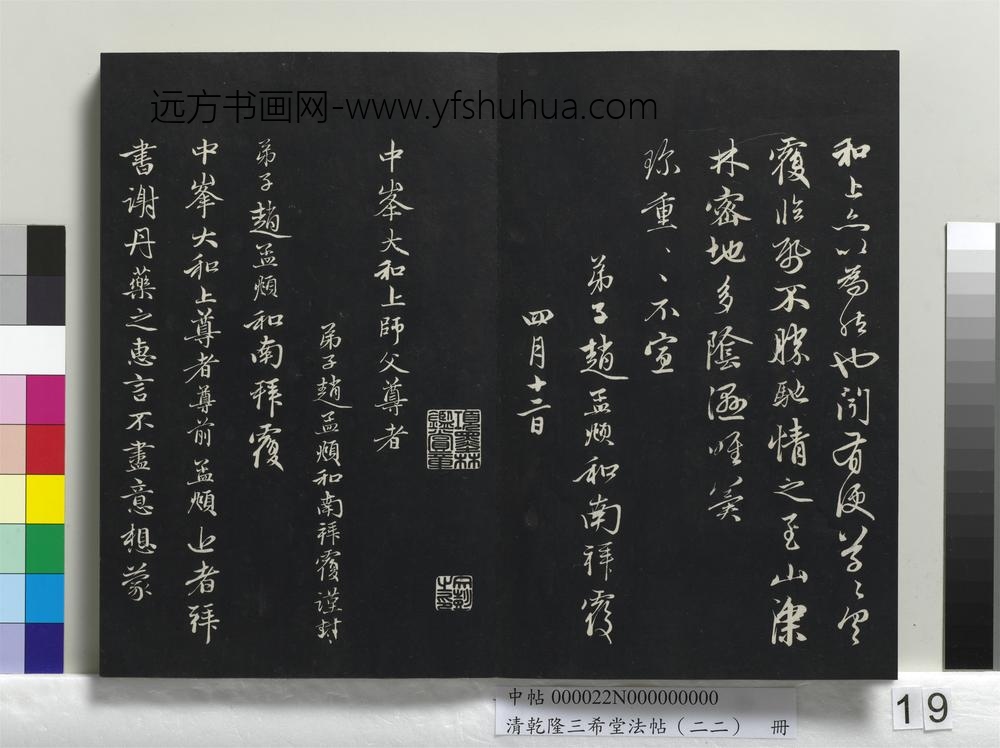 远方书画网-www.yfshuhua.com
和上亦以為然也閒有便草草具
覆臨紙不勝馳情之至山深
林密地多陰濕唯冀
珍重、、不宣
弟子趙孟頫和南拜覆
四月十二日
中峯大和上師父尊者
弟子趙孟頫和南拜覆謹封
弟子趙孟頫和南拜覆
中峯大和上尊者尊前孟頫上者拜
書謝丹藥之惠言不盡意想蒙
中帖 000022N000000000
清乾隆三希堂法帖（二二） 冊
19